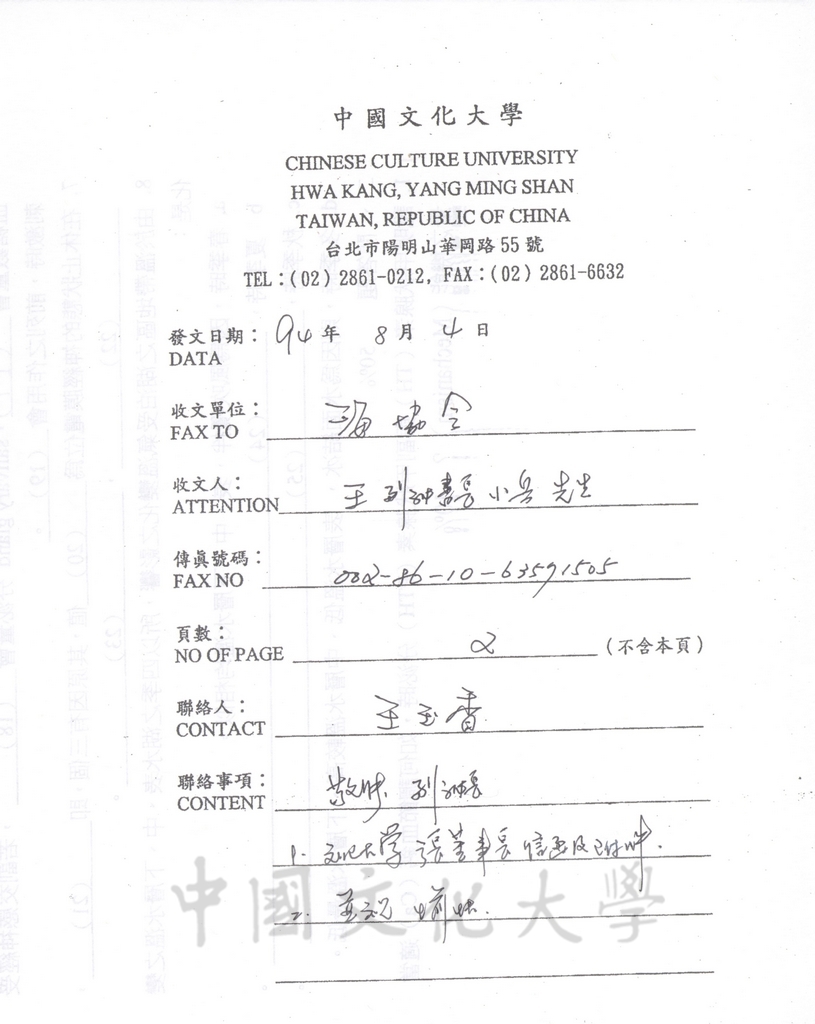 中國文化大學
CHINESE CULTURE UNIVERSITY
HWA KANG, YANG MING SHAN
TAIWAN, REPUBLIC OF CHINA
台北市陽明山華岡路55號
TEL：(02) 2861-0212, FAX：(02) 2861-6632
發文日期： 94年 8月 4日
DATA
收文單位： 海協會
FAX TO
收文人： 王副秘書長小兵先生
ATTENTION
傳眞號碼： 002-86-10-63591505
FAX NO
頁數： 2 (不含本頁)
NO OF PAGE
聯絡人： 王玉香
CONTACT
聯絡事項： 敬陳 副秘長
CONTENT
1. 文化大学張董事長信函及附件.
2. 並祝
中國文化大學